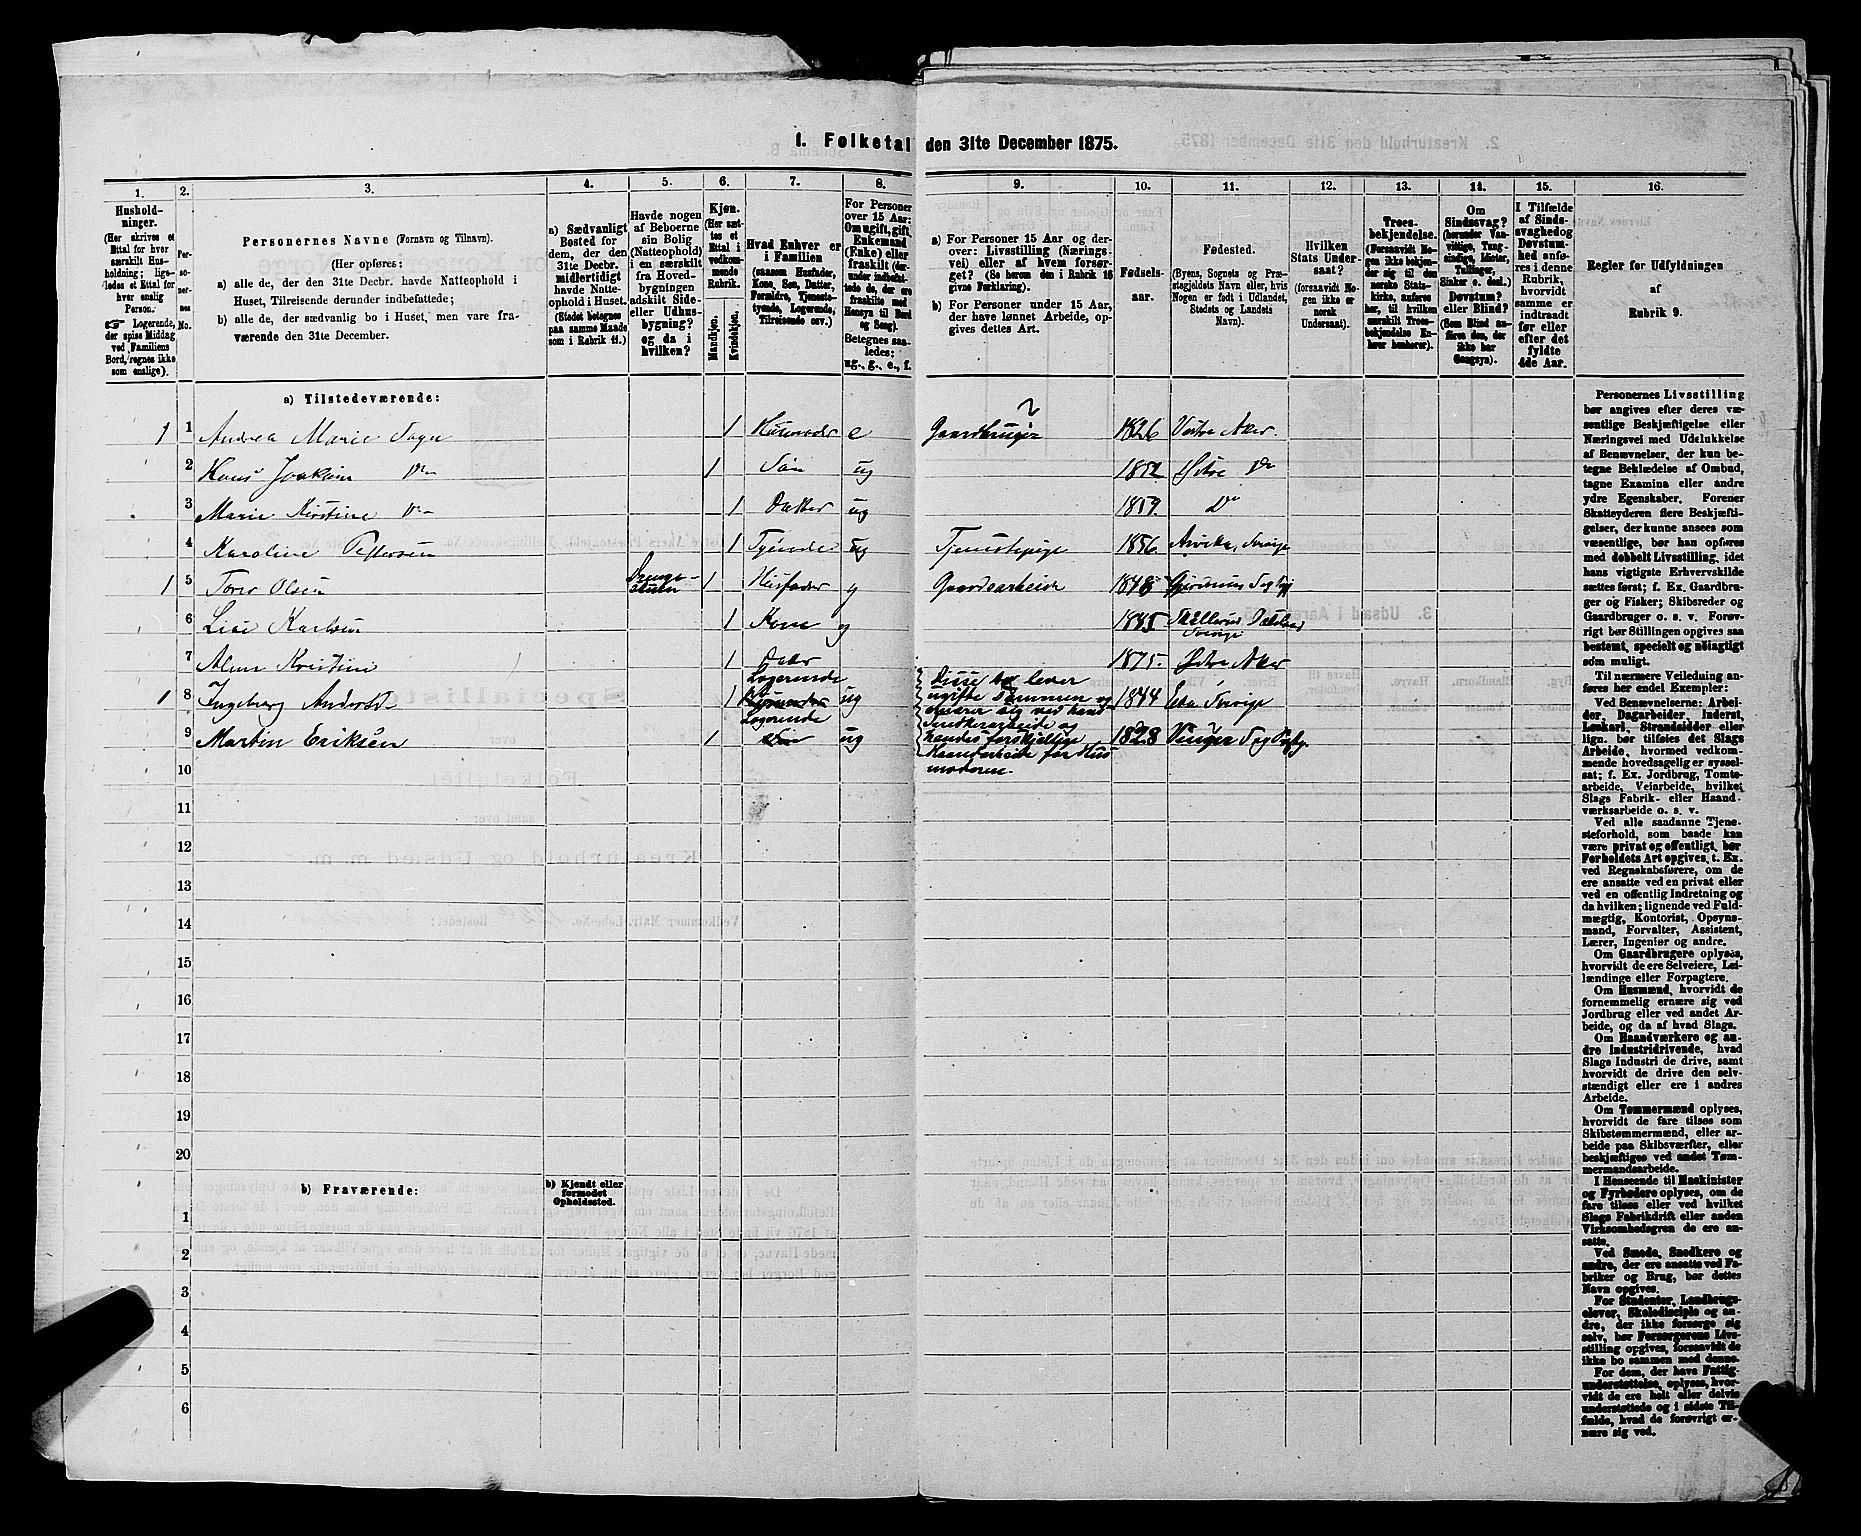 1. Folketal den 31te December 1875.
1.
2.
3.
4.
5.
6.
7.
8.
9.
10.
11.
12.
13.
14.
15.
16.
Hushold-
ninger.
(Her skrives et
Ettal for hver
særskilt Hus-
holdning; lige-
ledes et Ettal for
hver enslig
Person.
☞ Logerende,
der spise Middag
ved Familiens
Bord, regnes ikke
som enslige).
Per-
so-
ner-
nes
No.
Personernes Navne (Fornavn og Tilnavn).
(Her opføres:
a) alle de, der den 31te Decbr. havde Natteophold i
Huset, Tilreisende derunder indbefattede;
b) alle de, der sædvanlig bo i Huset, men vare fra-
værende den 31te December.
a) Sædvanligt
Bosted for
dem, der den
31te Decbr.
midlertidigt
havde Natte-
ophold i Huset.
(Stedet betegnes
paa samme Maade
som i Rubrik 11.)
Havde nogen
af Beboerne
sin Bolig
(Natteophold)
i en særskilt
fra Hoved-
bygningen
adskilt Side-
eller Udhus-
bygning?
og da i
hvilken?
Kjøn.
(Her sæt-
tes et
Ettal i
vedkom-
mende
Rubrik.
Mandkjøn.
Kvindekjøn.
Hvad Enhver er
i Familien
(saasom Husfader,
Kone, Søn, Datter,
Forældre, Tjeneste-
tyende, Logerende,
Tilreisende osv.)
For Personer
over 15 Aar:
Om ugift, gift,
Enkemand
(Enke) eller
fraskilt (der-
under indbefat-
tede de, der ere
fraskilte med
Hensyn til Bord
og Seng).
Betegnes saa-
ledes:
ug., g., e., f.
a) For Personer 15 Aar og der-
over: Livsstilling (Nærings-
vei) eller af hvem forsør-
get? (Se herom den i Rubrik 16
givne Forklaring).
b) For Personer under 15 Aar,
der have lønnet Arbeide, op-
gives dettes Art.
Fødsels-
aar.
Fødested.
(Byens, Sognets og Præ-
stegjeldets Navn eller, hvis
Nogen er født i Udlandet,
Stedets og Landets
Navn).
Hvilken
Stats Under-
saat?
(forsaavidt No-
gen ikke er
norsk
Undersaat).
Troes-
bekjendelse.
(Forsaavidt No-
gen ikke bekjen-
der sig til den
norske Stats-
kirke, anføres
her, til hvilken
særskilt Troes-
bekjendelse En-
hver henhører).
Om
Sindssvag?
(herunder Van-
vittige, Tung-
sindige, Idioter,
Tullinger,
Sinker o. desl.)
Døvstum?
eller Blind?
(Som Blind an-
føres den, der
ikke har
Gangsyn).
I Tilfælde
af Sinds-
svaghed og
Døvstum-
hed anfø-
res i denne
Rubrik,
hvorvidt
samme er
indtraadt
før eller
efter det
fyldte
4de Aar.
Regler for Udfyldningen
af
Rubrik 9.
a) Tilstedeværende:
1 1 Andrea Marie 1 Husmoder e Gaardbruger 1826 Vestre Aker.
2 Hans Joakim Do 1 Søn ug 1852 Østre Do
3 Marie Kirstine Do 1 Datter ug 1859 Do
4 Karoline Pettersen 1 Tyende ug Tjenestepige 1856 Arvika, Sverige
1 5 Torer Olsen 1 Husfader g Gaardsarbeide 1848
6 Lise Karlsen 1 Kone g 1845 Sverige
7 Kristine 1 Datter 1875 Østre Aker
1 8 Ingeborg Andersd. 1 Logerende ug 1844 Eda Sverige
9 Martin Eriksen 1 Logerende ug 1828 Vinger
Disse lever
ugifte sammen og
nærer sig ved
og
forskjellige
Haandarbeide for Hus
moderen.
10
11
12
13
14
15
16
17
18
19
20
b) Fraværende:
b) Kjendt eller
formodet
Opholdssted.
1
2
3
4
5
6
Personernes Livsstilling
bør angives efter deres væ-
sentlige Beskjæftigelse eller
Næringsvei med Udelukkelse
af Benævnelser, der kun be-
tegne Beklædelse af Ombud,
tagne Examina eller andre
ydre Egenskaber. Forener
Skatteyderen flere Beskjæfti-
gelser, der kunne ansees som
væsentlige, bør han opføres
med dobbelt Livsstilling, idet
hans vigtigste Erhvervskilde
sættes først; f. Ex. Gaardbru-
ger og Fisker; Skibsreder og
Gaardbruger o. s. v. Forøv-
rigt bør Stillingen opgives saa
bestemt, specielt og nøiagtigt
som muligt.
Til nærmere Veiledning an-
føres her endel Exempler:
Ved Benævnelserne: Arbei-
der, Dagarbeider, Inderst,
Løskarl, Strandsidder eller
lign. bør tilføies det Slags
Arbeide, hvormed vedkom-
mende hovedsagelig er syssel-
sat; f. Ex. Jordbrug, Tomte-
arbeide, Veiarbeide, hvilket
Slags Fabrik- eller Haand-
værksarbeide o. s. v.
Ved alle saadanne Tjene-
steforhold, som baade kan
være privat og offentligt, bør
Forholdets Art opgives, t. Ex.
ved Regnskabsførere, om de
ere ansatte ved en privat eller
ved en offentlig Indretning og
da hvilken; lignende ved Fuld-
mægtig, Kontorist, Opsyns-
mand, Forvalter, Assistent,
Lærer, Ingeniør og andre.
Om Gaardbrugere oplyses,
hvorvidt de ere Selveiere, Lei-
lændinge eller Forpagtere.
Om Husmænd, hvorvidt de
fornemmelig ernære sig ved
Jordbrug eller ved andet Ar-
beide, og da af hvad Slags.
Om Haandværkere og an-
dre industridrivende, hvad
Slags Industri de drive, samt
hvorvidt de drive den selv-
stændigt eller ere i andres
Arbeide.
Om Tømmermænd oplyses,
hvorvidt de fare tilsøs som
Skibstømmermænd, eller ar-
beide paa Skibsværfter, eller
beskjæftiges ved andet Tøm-
mermandsarbeide.
I Henseende til Maskinister
og Fyrbødere oplyses, om de
fare tilsøs eller ved hvilket
Slags Fabrikdrift eller anden
Virksomhedsgren de ere an-
satte.
Ved Smede, Snedkere og
andre, der ere ansatte ved Fa-
briker og Brug, bør dettes
Navn opgives.
For Studenter, Landbrugs-
elever, Skoledisciple og an-
dre, der ikke forsørge sig
selv, bør Forsørgerens Livs-
stilling opgives, forsaavidt de
ikke bo sammen med denne.
For dem, der have Fattig-
understøttelse, oplyses, hvor-
vidt de ere helt eller delvis
understøttede og i sidste Til-
fælde, hvad de forøvrigt er-
nære sig ved.